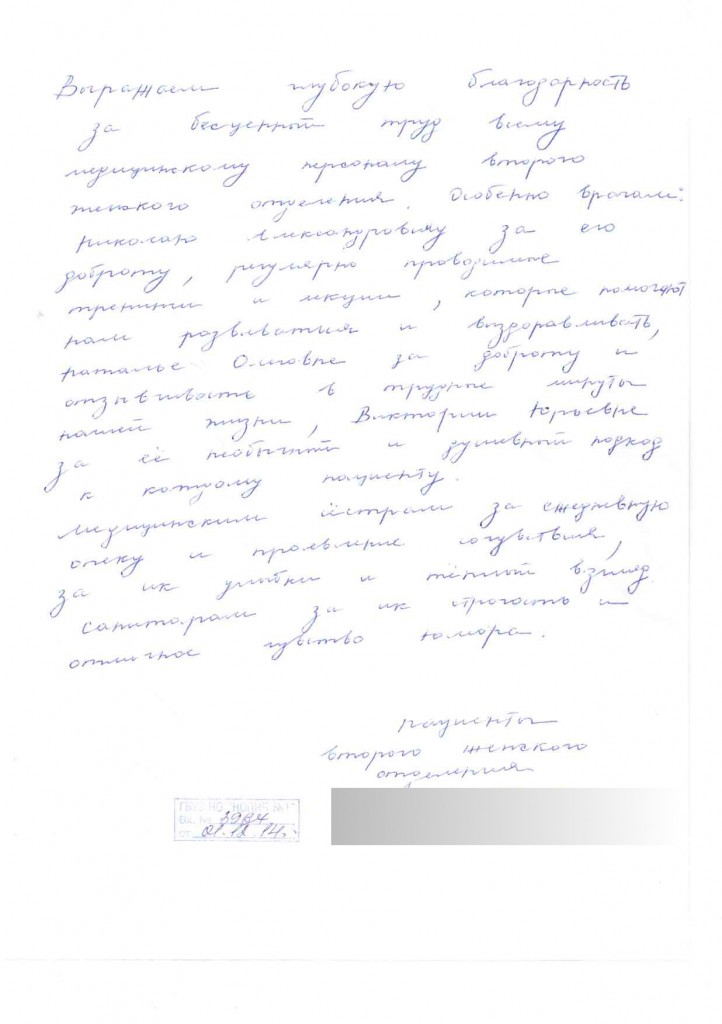 Выражаем глубокую благодарность
за бесценный труд всему
медицинскому персоналу второго
женского отделения. Особенно врачам:
Николаю Александровичу за его
доброту, регулярно проводимые
тренинги и лекции, которые помогают
нам развиваться и выздоравливать,
Наталье Олеговне за доброту и
отзывчивость в трудные минуты
нашей жизни, Виктории Юрьевне
за её необычный и душевный подход
к каждому пациенту.
Медицинским сёстрам за ежедневную
опеку и проявление сочувствия,
за их улыбки и тёплый взгляд.
Санитарам за их строгость и
отличное чувство юмора.
Пациенты
второго женского
отделения
ГБУЗ НО "НОПНБ №1"
Вх. № 3984
от 01.12.14г.